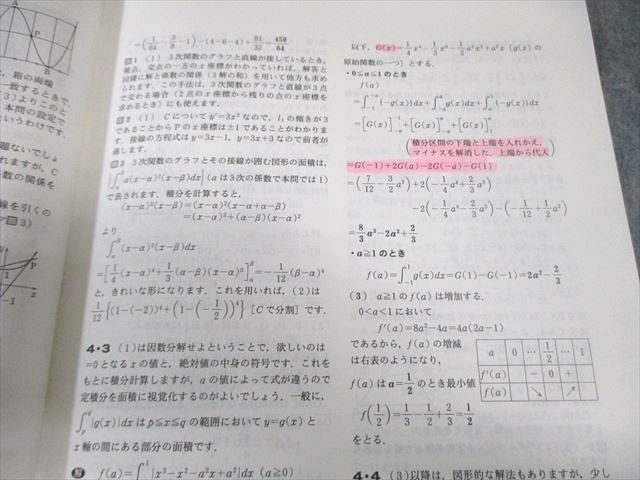 A
B
x
，箱の両端
一致するときで，
3)よりこのと
本問の設定で
というわけです．
題ないでしょ
れますが，C
数の関係を
線を引くの
3)
P
x
1
=(1/64-3/8-1)-(4-6-4)+81/32=459/64
1 (1) 3次関数のグラフと直線が接しているとき，
接点，交点の一方のx座標がわかっていれば，解答と
同様に解と係数の関係（3解の和）を用いて他方も求め
られます．この手法は，3次関数のグラフと直線が3点
で交わる場合（2点のx座標から残りの点のx座標を
求めるとき）にも使えます．
2 (1) Cについてy'=3x²なので，l₁の傾きが3
であることからPのx座標は±1であることがわかりま
す．接線の方程式はy=3x-1，y=3x+3なので前者が
適します．
3 3次関数のグラフとその接線が囲む図形の面積は，
|∫_α^β a(x-α)²(x-β)dx| (aは3次の係数で本問では1)
で表されます．積分を計算すると，
(x-α)²(x-β)=(x-α)²(x-α+α-β)
=(x-α)³+(α-β)(x-α)²
より
∫_α^β (x-α)²(x-β)dx
=[1/4(x-α)⁴+1/3(α-β)(x-α)³]_α^β=-1/12(β-α)⁴
と，きれいな形になります．これを用いれば，(2)は
1/12{(1-(-2))⁴+(1-(-1/2))⁴} [Cで分割] です．
4・3 (1)は因数分解せよということで，欲しいのは
=0となるxの値と，絶対値の中身の符号です．これを
もとに積分計算しますが，aの値によって式が違うので
定積分を面積に視覚化するのがよいでしょう．一般に，
∫_p^q |g(x)|dxはp≦x≦qの範囲においてy=g(x)と
x軸の間にある部分の面積です．
解 f(a)=∫_{-1}^1 |x³-x²-a²x+a²|dx (a≧0)
以下，G(x)=1/4x⁴-1/3x³-1/2a²x²+a²x [g(x)の
原始関数の一つ] とする．
・0≦a≦1のとき
f(a)
=∫_{-1}^{-a}(-g(x))dx+∫_{-a}^a g(x)dx+∫_a^1(-g(x))dx
=[G(x)]_{-a}^{-1}+[G(x)]_{-a}^a+[G(x)]_1^a
積分区間の下端と上端を入れかえ，
マイナスを解消した．上端から代入
=G(-1)+2G(a)-2G(-a)-G(1)
=(7/12-3/2a²)+2(-1/4a⁴+2/3a³)
-2(-1/4a⁴-2/3a³)-(-1/12+1/2a²)
=8/3a³-2a²+2/3
・a≧1のとき
f(a)=∫_{-1}^1 g(x)dx=G(1)-G(-1)=2a²-2/3
(3) a≧1のf(a)は増加する．
0<a<1において
f'(a)=8a²-4a=4a(2a-1)
であるから，f(a)の増減
は右表のようになり，
f(a)はa=1/2のとき最小値
f(1/2)=1/3-1/2+2/3=1/2
をとる．
a 0 … 1/2 … 1
f'(a) - 0 +
f(a) ↘ ↗
4・4 (3)以降は，図形的な解法もありますが，少し